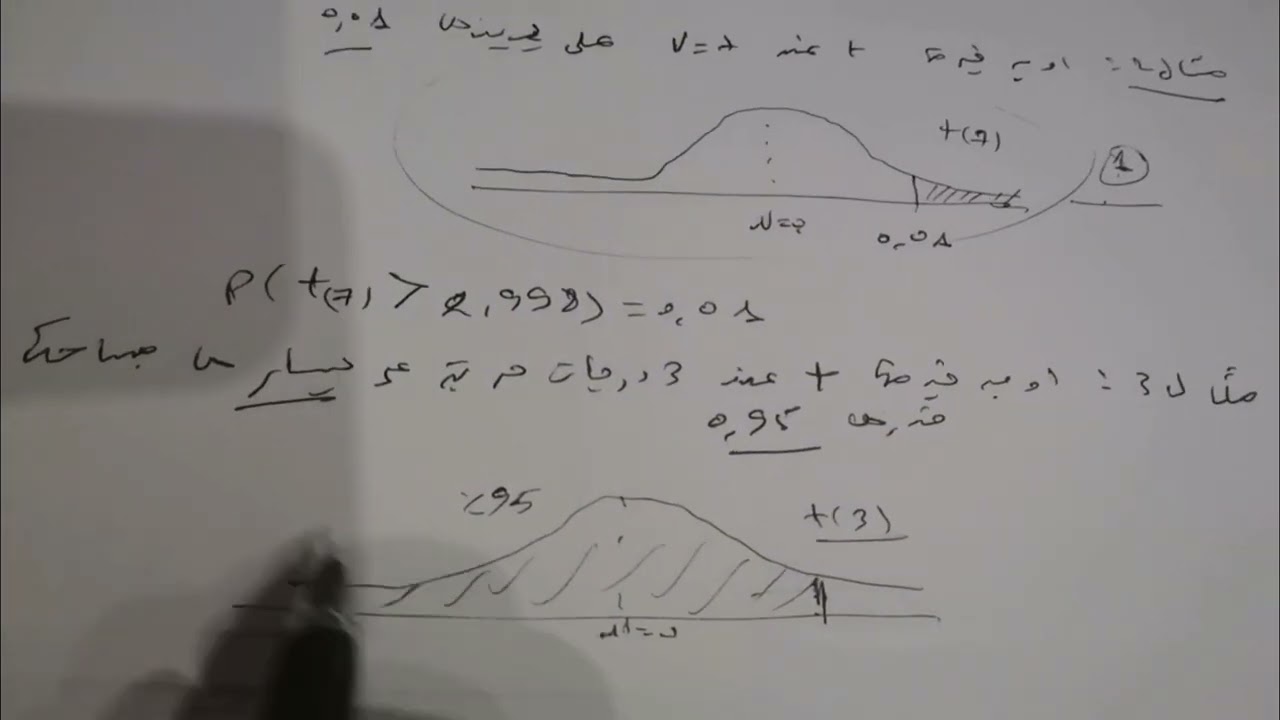 مثال 2 : اوجد قيمة t عند v = 7 على يمينها 0,01
t(7)
1
μ=0
0,01
P( t(7) > 2,998) = 0,01
مثال 3 : اوجد قيمة t عند 3 درجات حرية على يسارها مساحة
قدرها 0,95
%95
t(3)